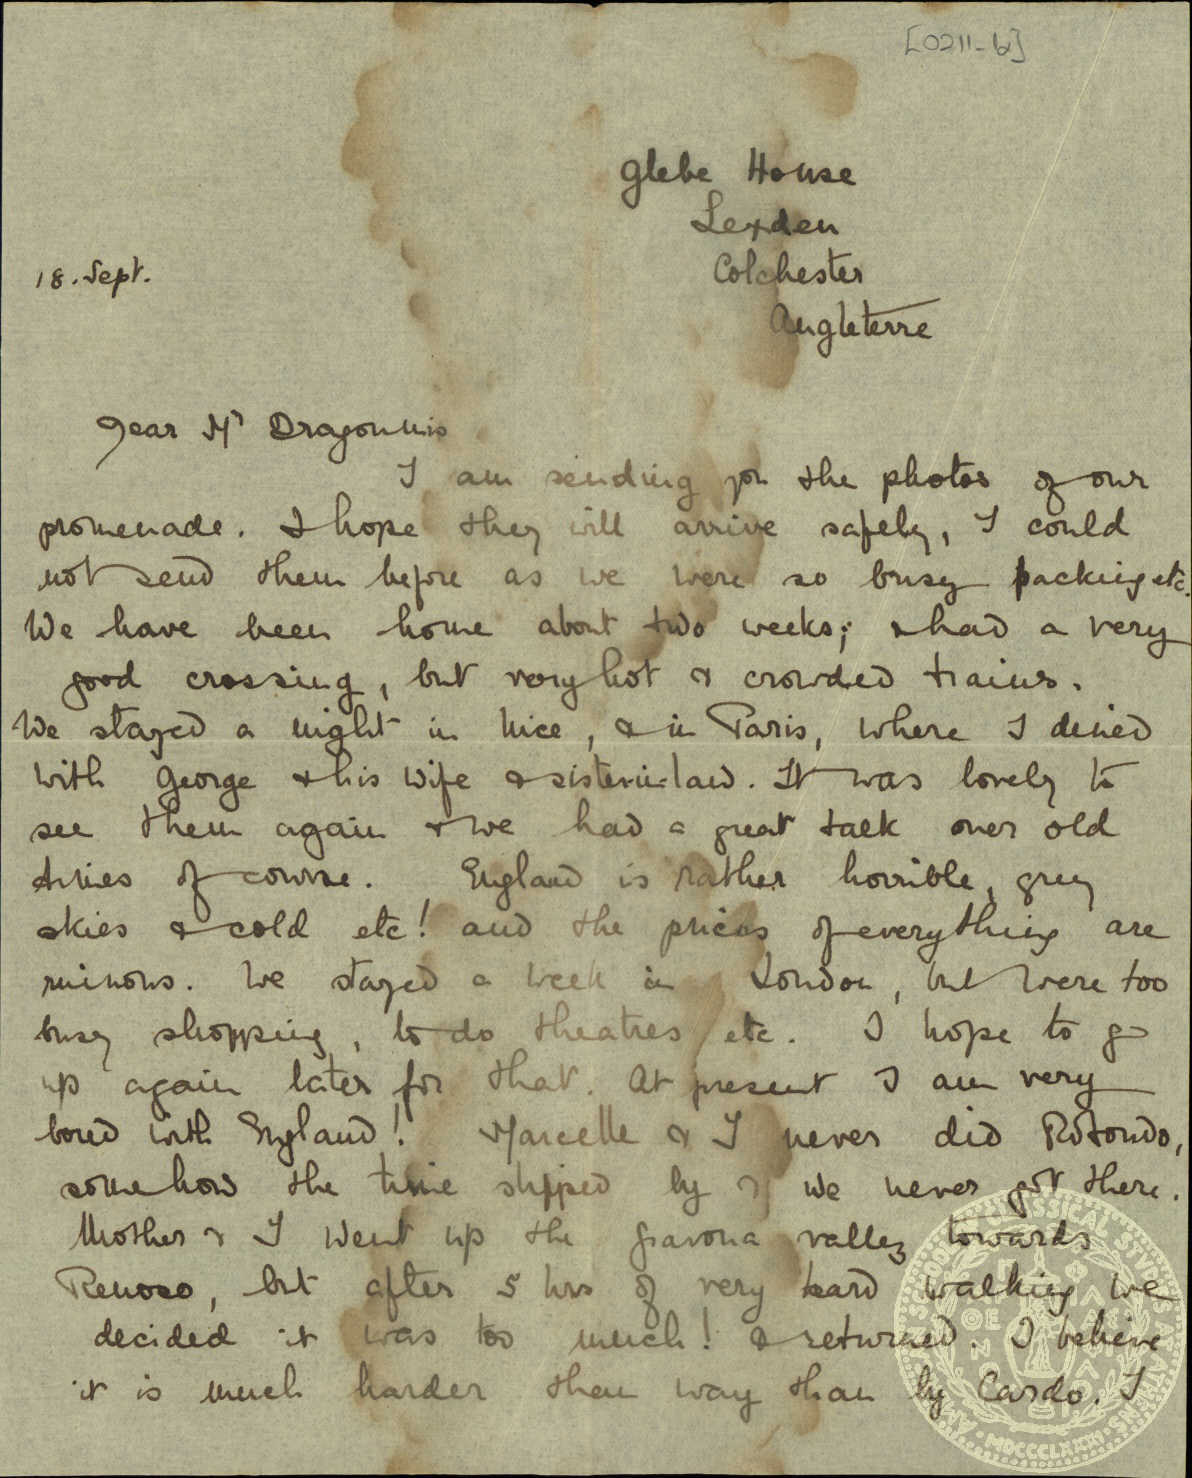 [0211-b]
Glebe House
Lexden
Colchester
Angleterre
18. Sept.
Dear Mr Dragoumis
I am sending you the photos of our
promenade. I hope they will arrive safely, I could
not send them before as we were so busy packing etc.
We have been home about two weeks; & had a very
good crossing, but very hot & crowded trains.
We stayed a night in Nice, & in Paris, where I dined
with George & his wife & sister-in-law. It was lovely to
see them again & we had a great talk over old
times of course. England is rather horrible, grey
skies & cold etc! and the prices of everything are
ruinous. We stayed a week in London, but were too
busy shopping, to do theatres etc. I hope to go
up again later for that. At present I am very
bored with England! Marcelle & I never did Rotondo,
somehow the time slipped by & we never got there.
Mother & I went up the Gravona valley towards
Renoso, but after 5 hrs of very hard walking we
decided it was too much! & returned. I believe
it is much harder that way than by Cardo. I
AMERICAN SCHOOL OF CLASSICAL STUDIES AT ATHENS
MDCCCLXXXI